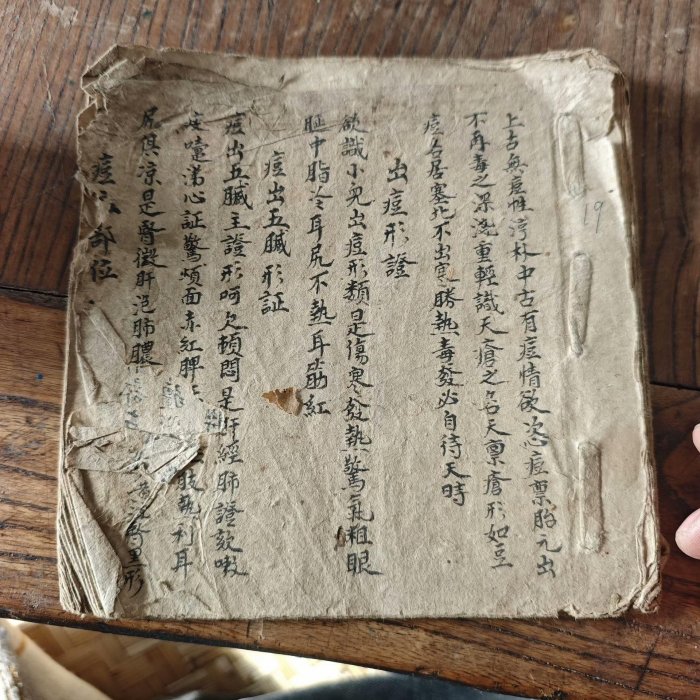 上古無痘性淳朴中古有痘情欲恣痘禀胎元出
不再毒之深淺重輕識天瘡之名天禀瘡形如豆
痘名居塞北不出寒勝熱毒發必自待天時
出痘形證
欲識小兒出痘形類是傷寒發熱驚氣粗眼
脏中脂冷耳尻不熱耳筋紅
痘出五臟形証
痘出五臟主證形呵欠頓悶是肝經肺證欬嗽
痰嚏涕心証驚煩面赤紅脾 肢熱利耳
尻俱凉是腎徵肝泡肺膿 腎黑形
痘 部位
19